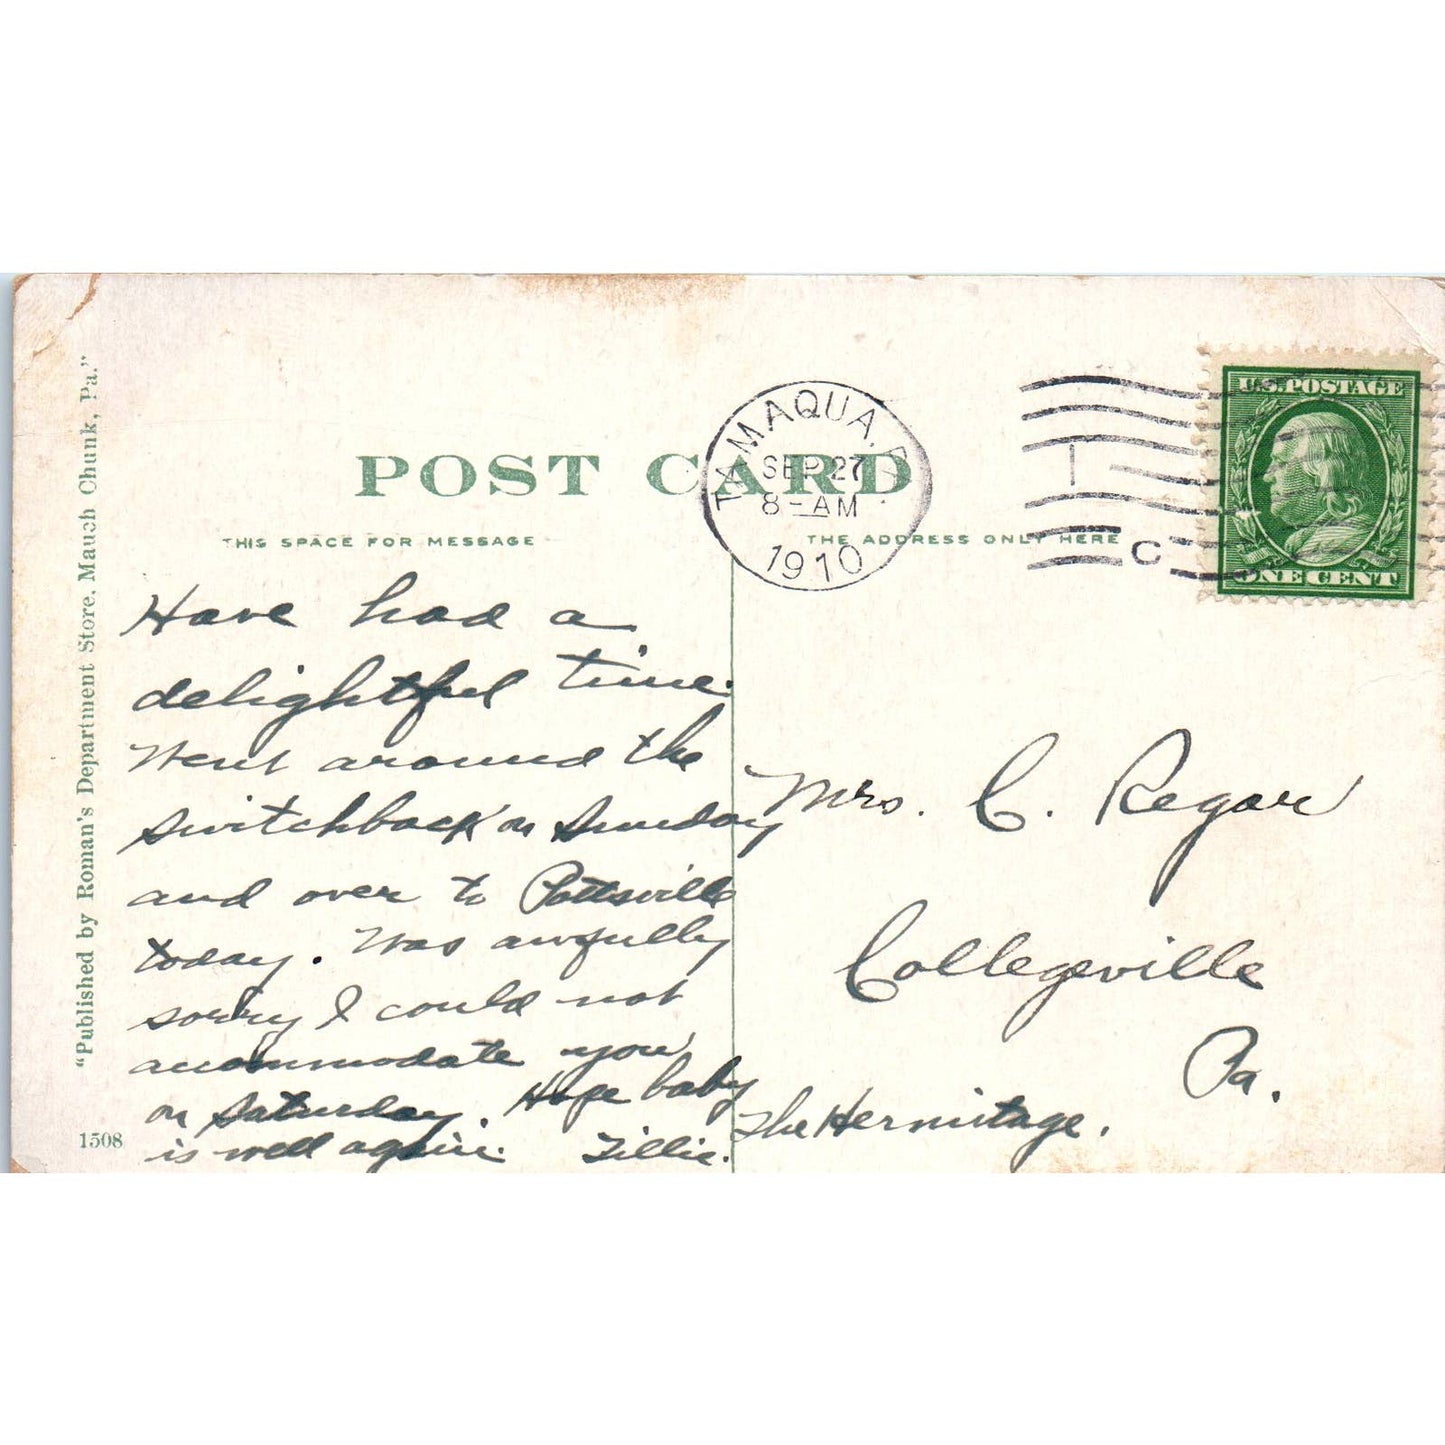 "Published by Roman's Department Store, Mauch Chunk, Pa."
1508
POST CARD
THIS SPACE FOR MESSAGE
THE ADDRESS ONLY HERE
TAMAQUA, PA.
SEP 27
8-AM
1910
1
C
U.S. POSTAGE
ONE CENT
Have had a
delightful time.
Went around the
switchback on Sunday
and over to Pottsville
today. Was awfully
sorry I could not
accommodate you
on Saturday. Hope baby
is well again. Tillie.
Mrs. C. Regar
Collegeville
Pa.
The Hermitage.